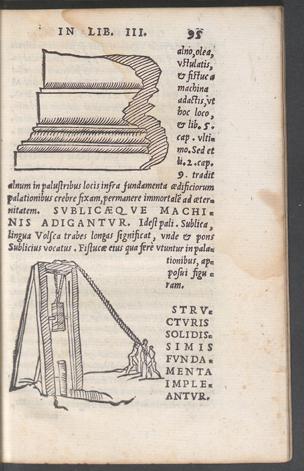 IN LIB. III. 95
alno, olea,
vstulatis,
& fistuca
machina
adactis, vt
hoc loco,
& lib. 5.
cap. vlti-
mo. Sed et
li. 2. cap.
9. tradit
alnum in palustribus locis infra fundamenta ædificiorum
palationibus crebre fixam, permanere immortalē ad æter-
nitatem. SVBLICÆQVE MACHI-
NIS ADIGANTVR. Idest pali. Sublica,
lingua Volsca trabes longas significat, vnde & pons
Sublicius vocatus. Fistucæ eius qua ferè vtuntur in pala-
tionibus, ap-
posui figu-
ram.
STRV-
CTVRIS
SOLIDIS-
SIMIS
FVNDA-
MENTA
IMPLE-
ANTVR.